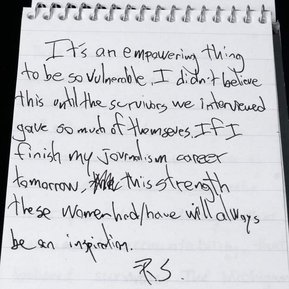 It's an empowering thing
to be so vulnerable. I didn't believe
this until the survivors we interviewed
gave so much of themselves. If I
finish my journalism career
tomorrow, this strength
these women had/have will always
be an inspiration.
RS